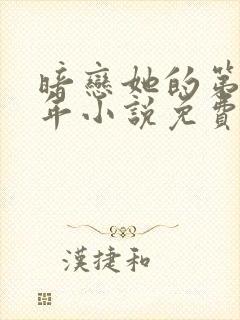 暗戀她的第
年小說免費
漢捷和